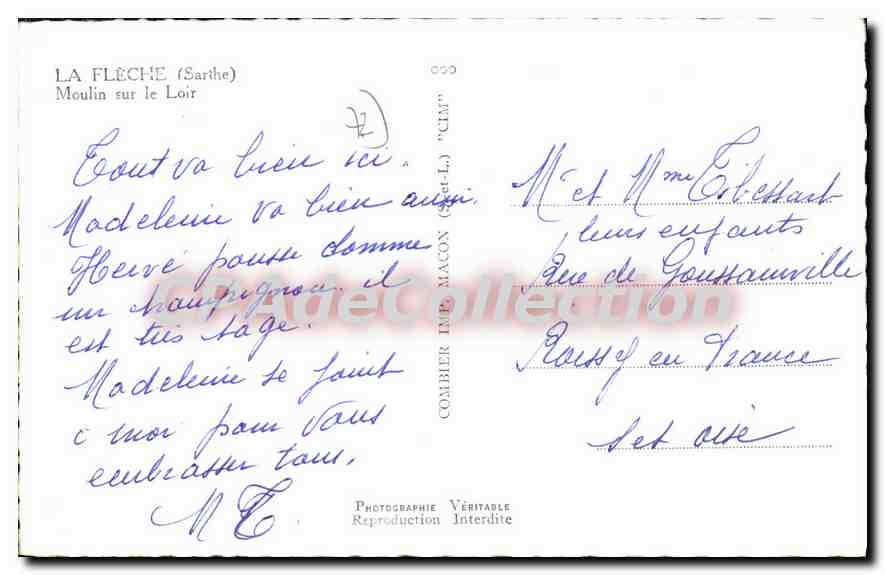 LA FLÈCHE (Sarthe)
Moulin sur le Loir
72
Tout va bien ici.
Madeleine va bien aussi.
Hervé pousse comme
un champignon il
est très sage.
Madeleine se joint
a moi pour vous
embrasser tous.
M T
PHOTOGRAPHIE VÉRITABLE
Reproduction Interdite
COMBIER IMP. MACON (S.-et-L.) "CIM"
Mr et Mme Tibessart
leurs enfants
Rue de Goussainville
Roissy en France
S et oise
CPAdeCollection